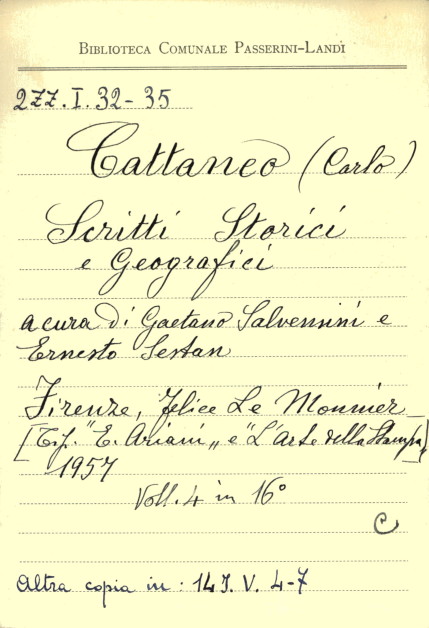 BIBLIOTECA COMUNALE PASSERINI-LANDI
2ZZ.I.32-35
Cattaneo (Carlo)
Scritti Storici
e Geografici
a cura di Gaetano Salvemini e
Ernesto Sestan
Firenze, Felice Le Monnier
[Tip. "E. Ariani„ e "L'arte della Stampa„]
1957
Voll. 4 in 16°
C
Altra copia in: 14J. V. 4-7